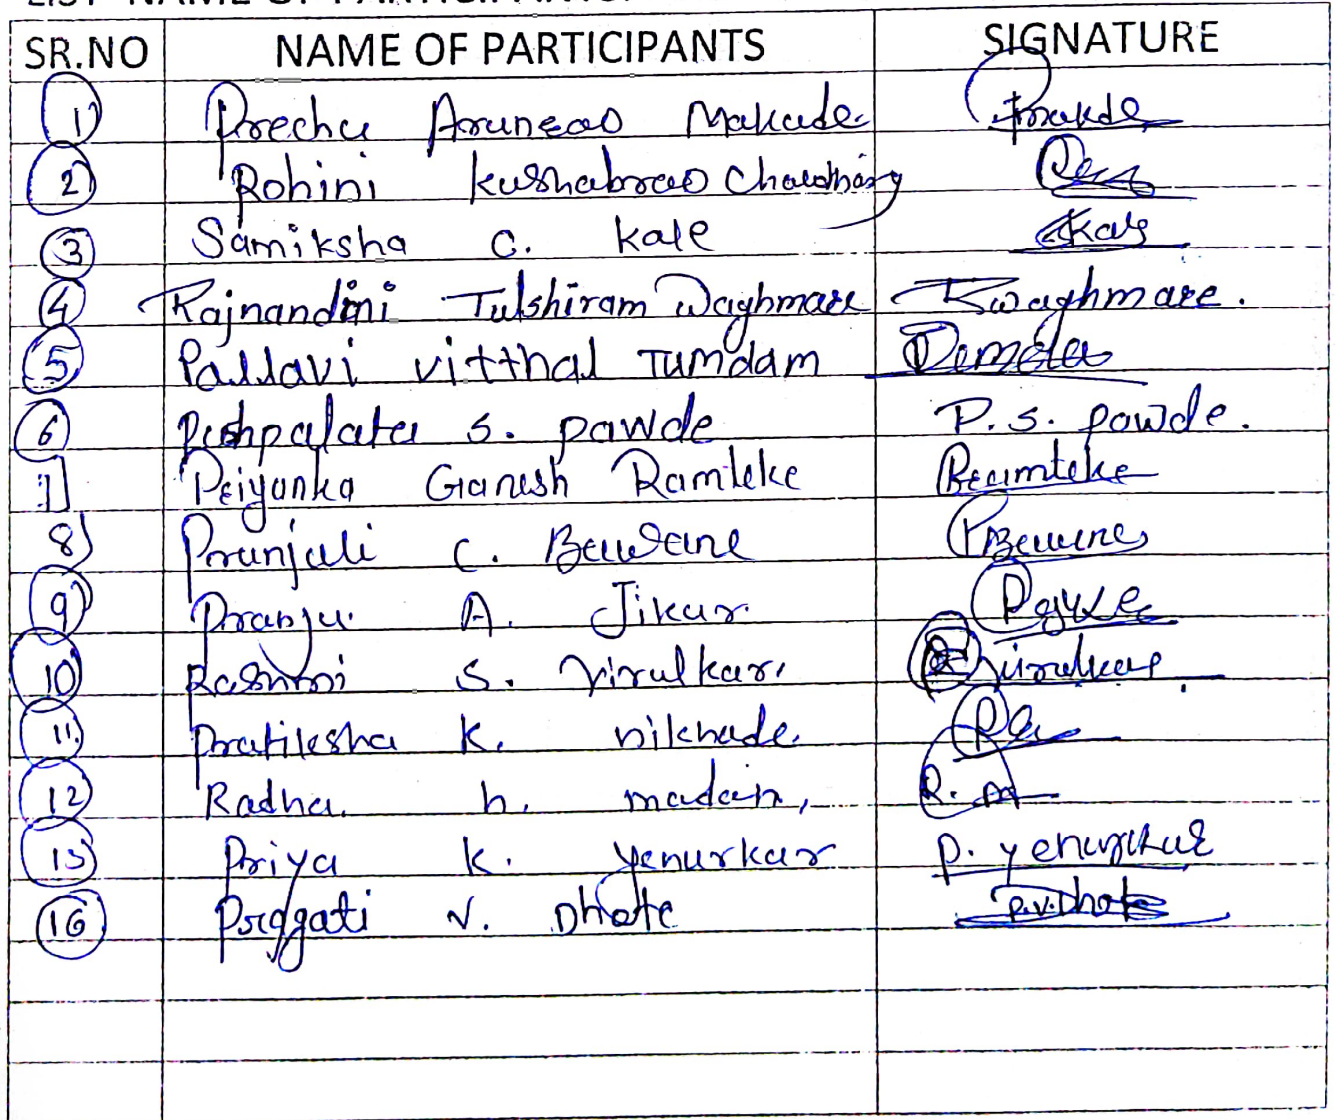 SR.NO NAME OF PARTICIPANTS SIGNATURE
1) Arunrao Makade
2) Rohini Kushabrao Chaudhary
3 Samiksha C. Kale
4 Rajnandini Tulshiram Waghmare Rwaghmare.
5 Pallavi vitthal Tumdam
6 Pushpalata S. Pawde P.S. Pawde.
7] Priyanka Ganesh Ramteke Ramteke
8) Pranjali C. Bawane
9) A. Jikar
10) Rashmi S. Virulkar. Virulkar
11. Pratiksha K. nikhade.
12) Radha. h. R. M
13 Priya K. Yenurkar P. yenurkar
16 Pragati V. Dhote P.V.Dhote